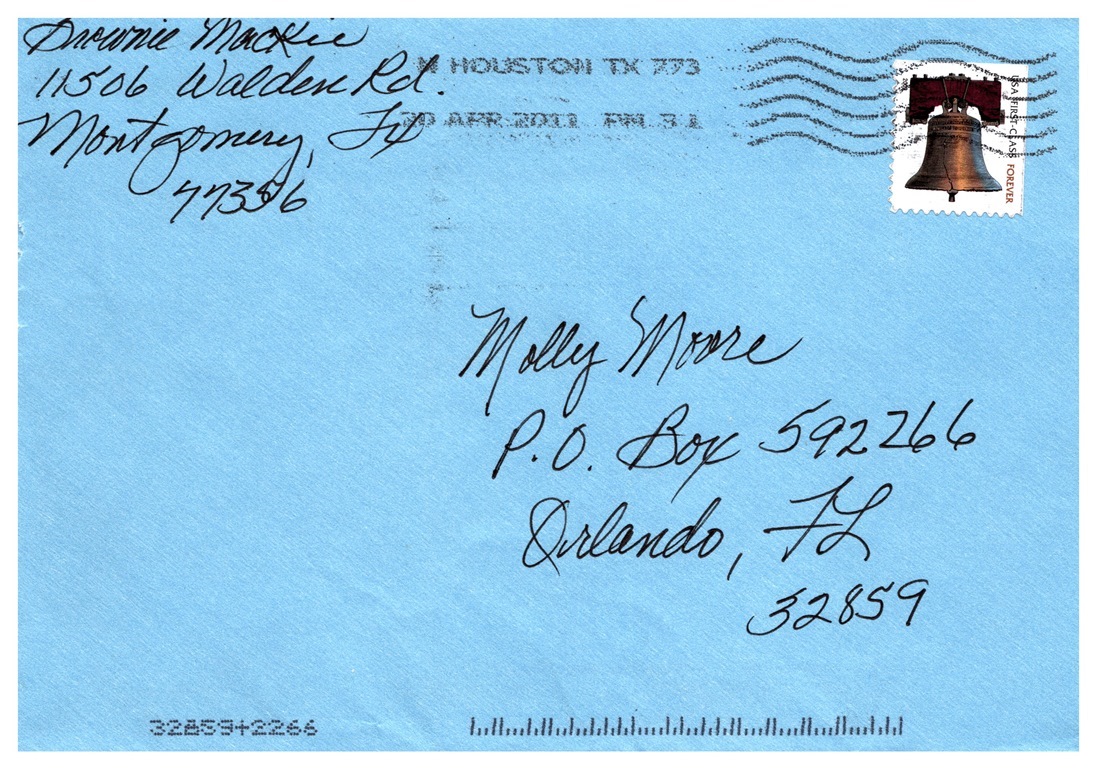 Brownie Mackie
11506 Walden Rd.
Montgomery, Tx
77356
N HOUSTON TX 773
20 APR 2011 PM 3 L
USA FIRST-CLASS FOREVER
Molly Moore
P.O. Box 592266
Orlando, FL
32859
32859+2266